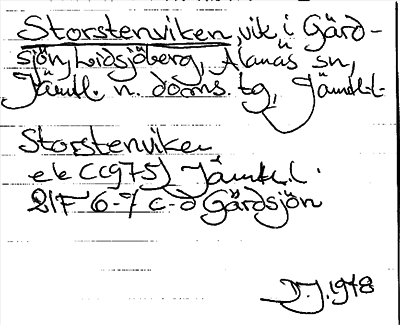 Storstenviken, vik i Gärd-
sjön, Lidsjöberg, Alanäs sn,
Jämtl. n. doms. tg, Jämtl.l.
Storstenviken
ek (1975) Jämtl.l.
21F 6-7 c-d Gärdsjön
1978